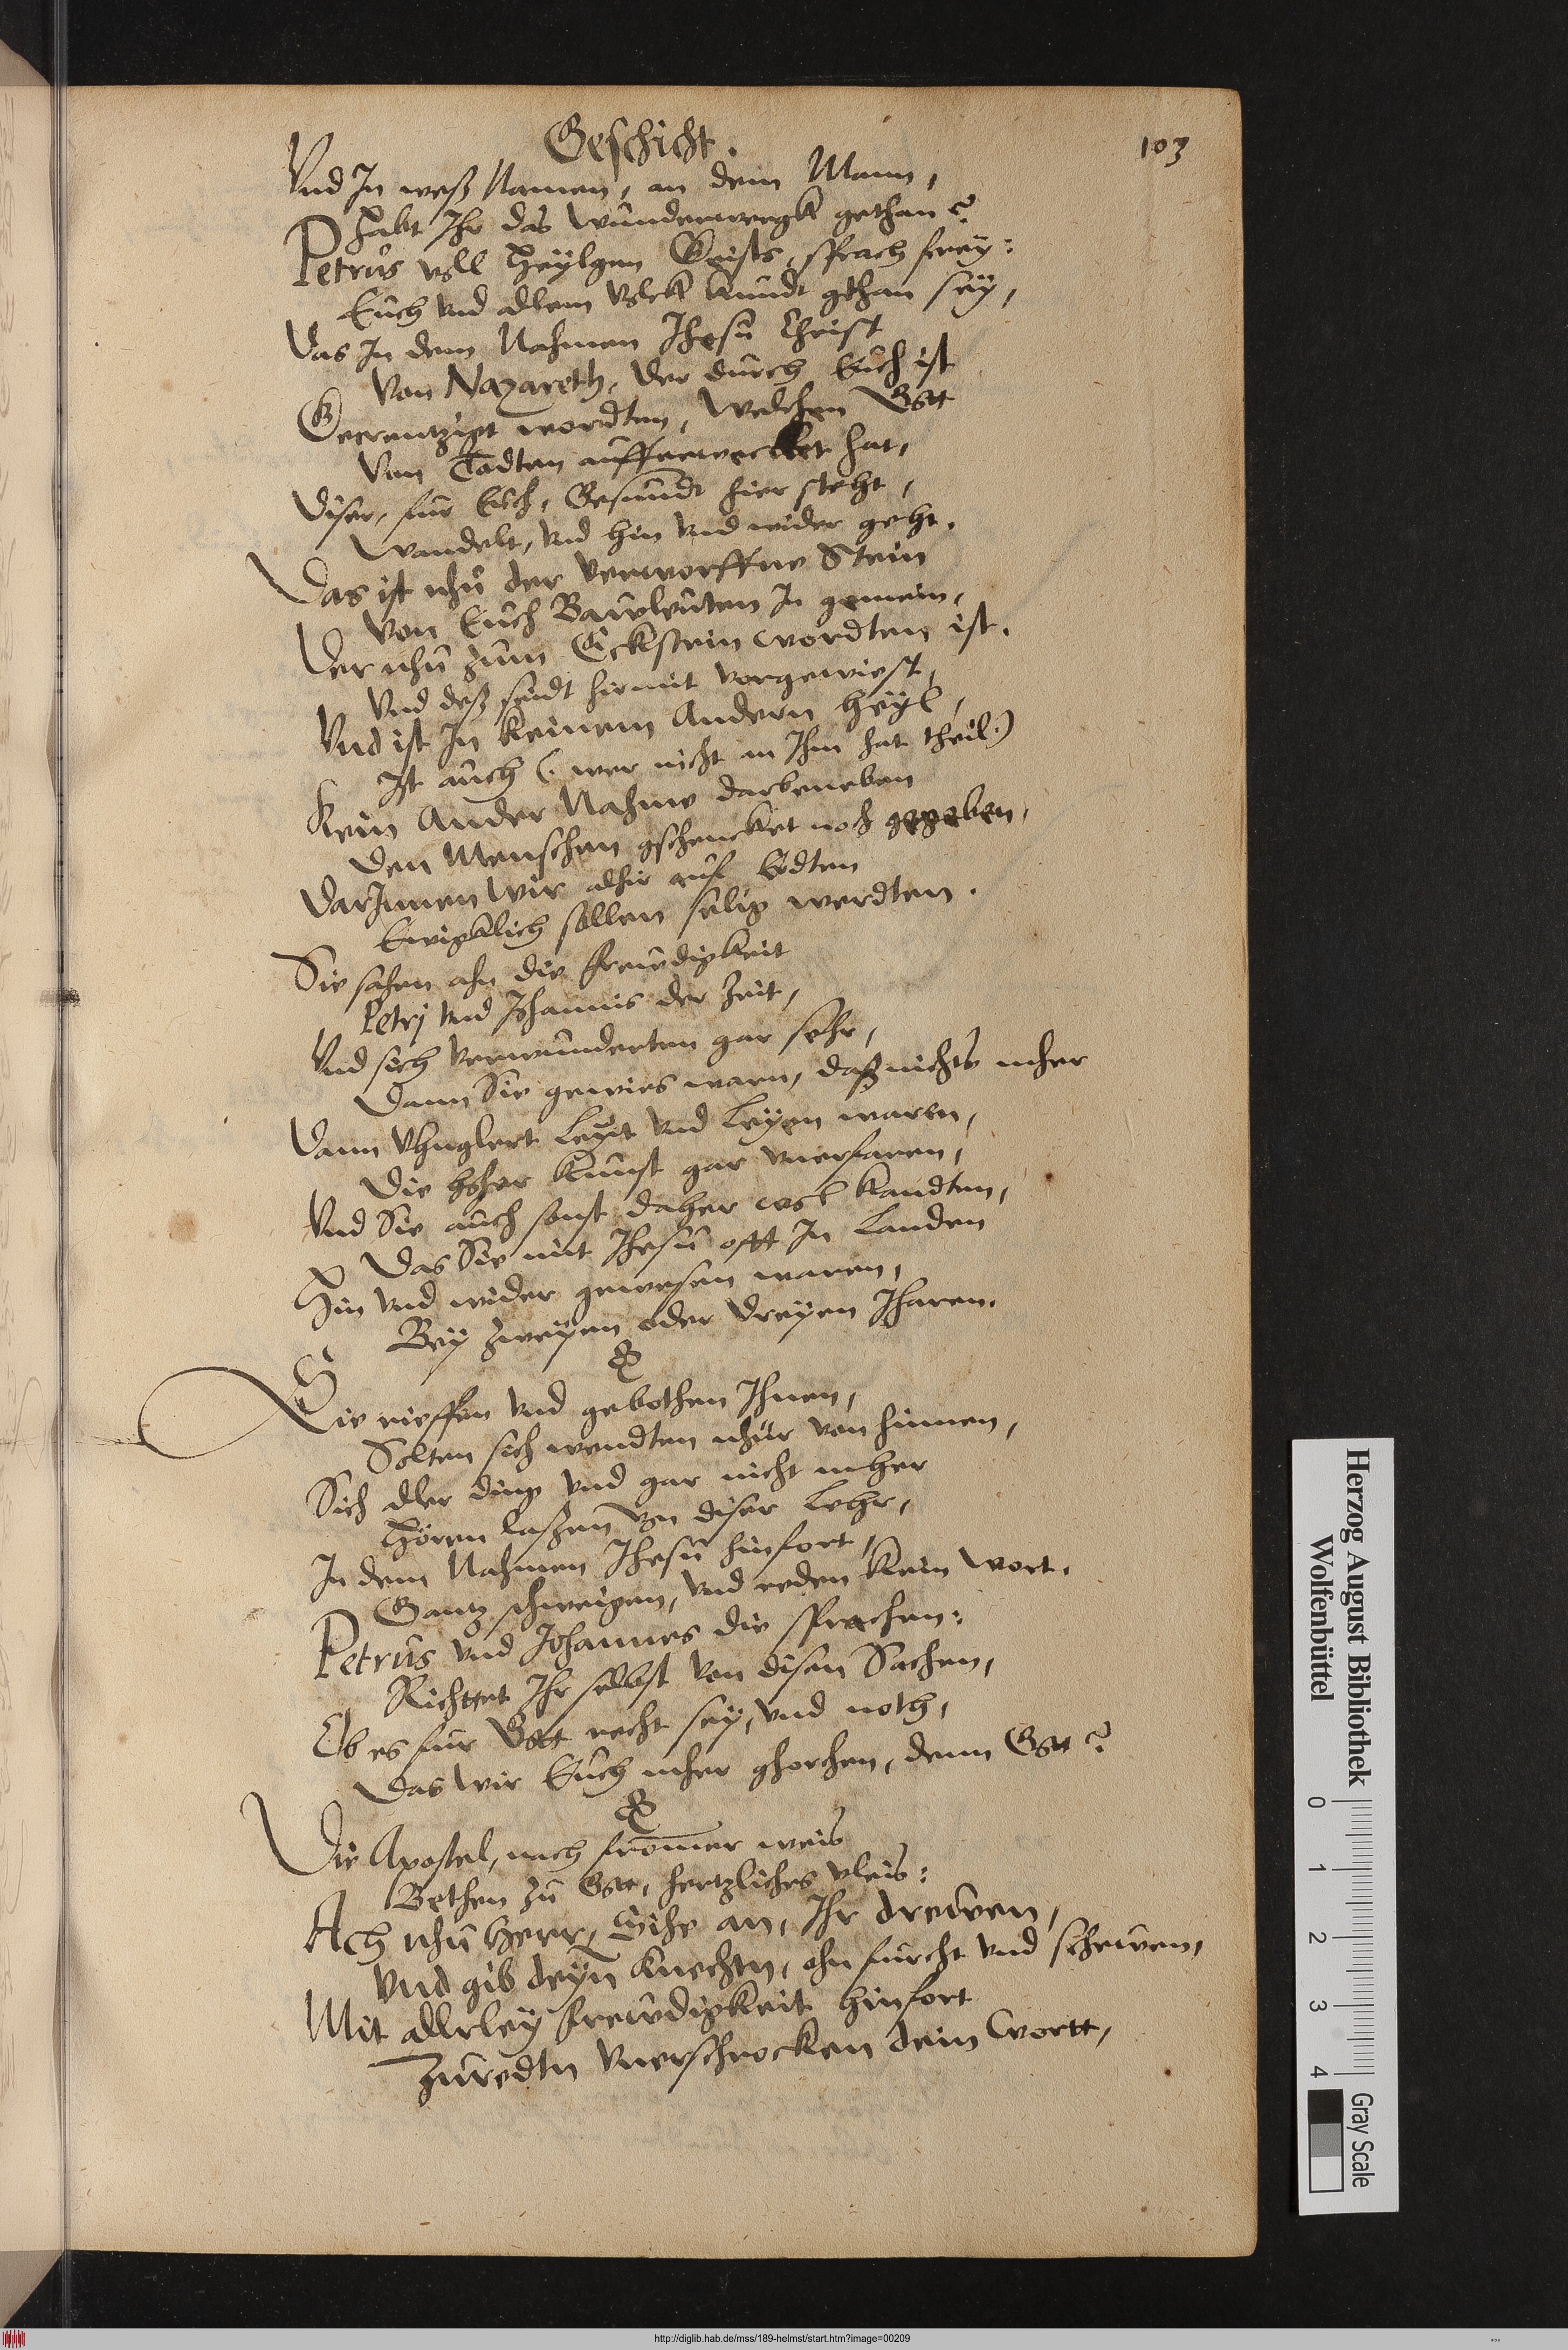 Geschicht.
103
Vnd In weß Namen, an dem Mann,
Habt Ihr das Wunderwergk gethan?
Petrus voll Heylgen Geists, sprach frey:
Euch vnd allem Volck kundt gthan sey,
Das In dem Nahmen Jhesu Christ
Von Nazareth, der durch Euch ist
Gecreutzigt wordten, Welchen Gott
Von Todten aufferwecket hat,
Diser, fur Euch, Gesundt hier steht,
Wandelt, vnd hin vnd wider geht.
Das ist nhu der verworffne Stein
Von Euch Bawleuten In gemein,
Der nhu zum Eckstein wordten ist.
Vnd deß seidt hiermit vergewist,
Vnd ist In keinem Andern heyl,
Ist auch (: wer nicht an Ihm hat theil:)
Kein Ander Nahme darbeneben
Den Menschen gschencket noch gegeben,
DarInnen Wir alhie auf Erdten
Ewigklich sollen selig werdten.
Sie sahen ahn die freudigkeit
Petrj vnd Johannis der Zeit,
Vnd sich verwunderten gar sehr,
Dann Sie gewies warn, daß nichts mher
Dann Vhnglert Leyt vnd Leyen waren,
Die hoher kunst gar vnerfaren,
Vnd Sie auch sonst daher wol kandten,
Das Sie mit Jhesu offt In Landen
Hin vnd wider gewesen waren,
Bey zweyen oder dreyen Jharen.
Sie rieffen vnd gebothen Ihnen,
Solten sich wendten nhur von hinnen,
Sich aller ding vnd gar nicht mher
Hören laßen von diser Lehr,
In dem Nahmen Jhesu hinfort,
Gantz schweigen, vnd reden kein wort.
Petrus vnd Johannes die sprachen:
Richttet Ihr selbst von disen Sachen,
Ob es fur Gott recht sey, vnd noth,
Das Wir Euch mher ghorchen, denn Gott?
Die Apostel, nach frommer weis
Bethen zu Gott, hertzliches vleis:
Ach nhu Herr, Sihe an, Ihr drewen,
Vnd gib deyn knechtn, ohn furcht vnd schewen,
Mit allerley frewdigkeit hinfort
Zuredtn vnerschrocken dein Wortt,
Herzog August Bibliothek
Wolfenbüttel
0 1 2 3 4
Gray Scale
http://diglib.hab.de/mss/189-helmst/start.htm?image=00209